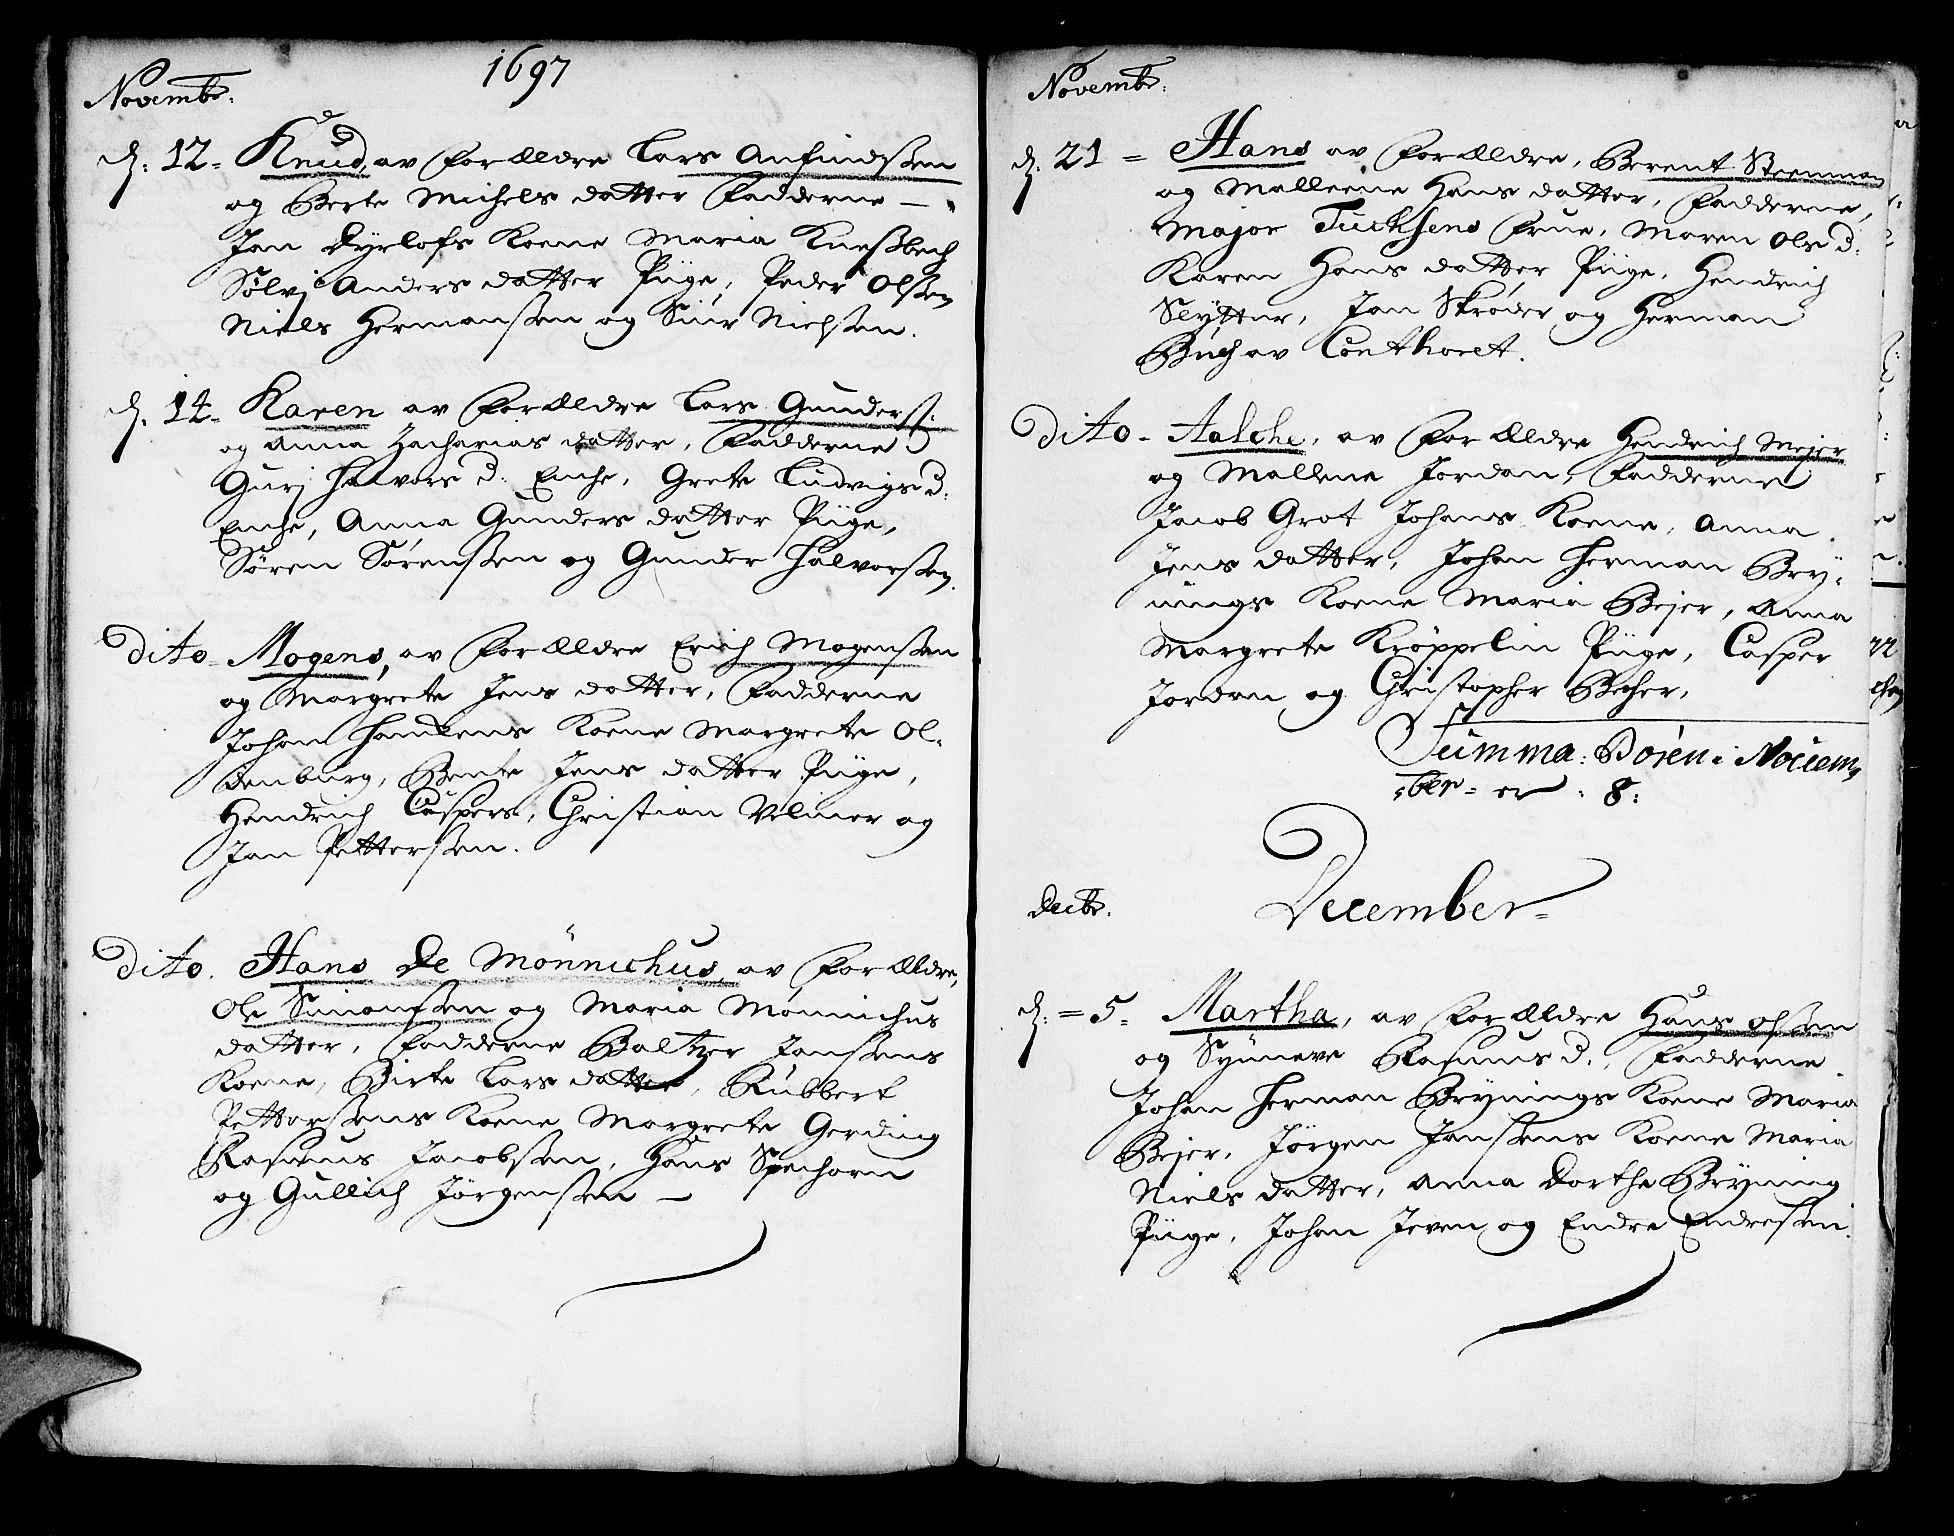 1697
Novembr:
d: 12 = Knud, av Forældre Lars Anfindßen
og Berte Michels datter Fadderne —
Jan Dyrlofs Koene Maria Kneßbech
Sølvj Anders datter Piige, Peder Olßen
Niels Hermanßen og Siur Nielsen.
d: 14 = Karen av Forældre Lars Gunderß:
og Anna Zacharias datter, Fadderne
Gurj Halvors d: Enche, Grete Ludvigs d:
Enche, Anna Gunders datter Piige,
Søren Sørenßen og Gunder Halvorßen.
Dito = Mogens, av Forældre Erich Mogenßen
og Margrete Jens datter, Fadderne
Johan Hankens Koene Margrete Ol-
denburg, Bente Jens datter Piige,
Hendrich Caspers, Christian Velmer og
Jan Petterßen.
Dito. Hans De Mönnichus, av Forældre,
Ole Simonßen og Maria Mönnichus
datter, Fadderne Baltzer Janßens
Koene, Birte Lars datter, Rubbert
Petterßens Koene Margrete Gerding
Rasmus Jacobßen, Hans Spechorn
og Gullich Jörgenßen —
Novembr:
d: 21 = Hans av Forældre, Berent Steenman
og Malleene Hans datter, Fadderne,
Major Tuchsens Frue, Maren Ols d:
Karen Hans datter Piige, Hendrich
Slytter, Jan Skrøder og Herman
Buch av Conthoret.
Dito - Aalche, av Forældre Hendrich Mejer
og Mallene Jordan, Fadderne
Jacob Grot Johans Koene, Anna
Jens datter, Johan Herman Bry-
nings Koene Maria Bejer, Anna
Margrete Kröppelin Piige, Casper
Jordan og Christopher Becher,
Summa: Børen i Novem,
,ber = er : 8:
December =
Decbr.
d: = 5 = Martha, av Forældre Hans Olßen
og Synneve Rasmus d:, Fadderne
Johan Herman Brynings Koene Maria
Bejer, Jörgen Janßens Koene Maria
Niels datter, Anna Dorthe Bryning
Piige, Johan Jeven og Endre Endreßen.